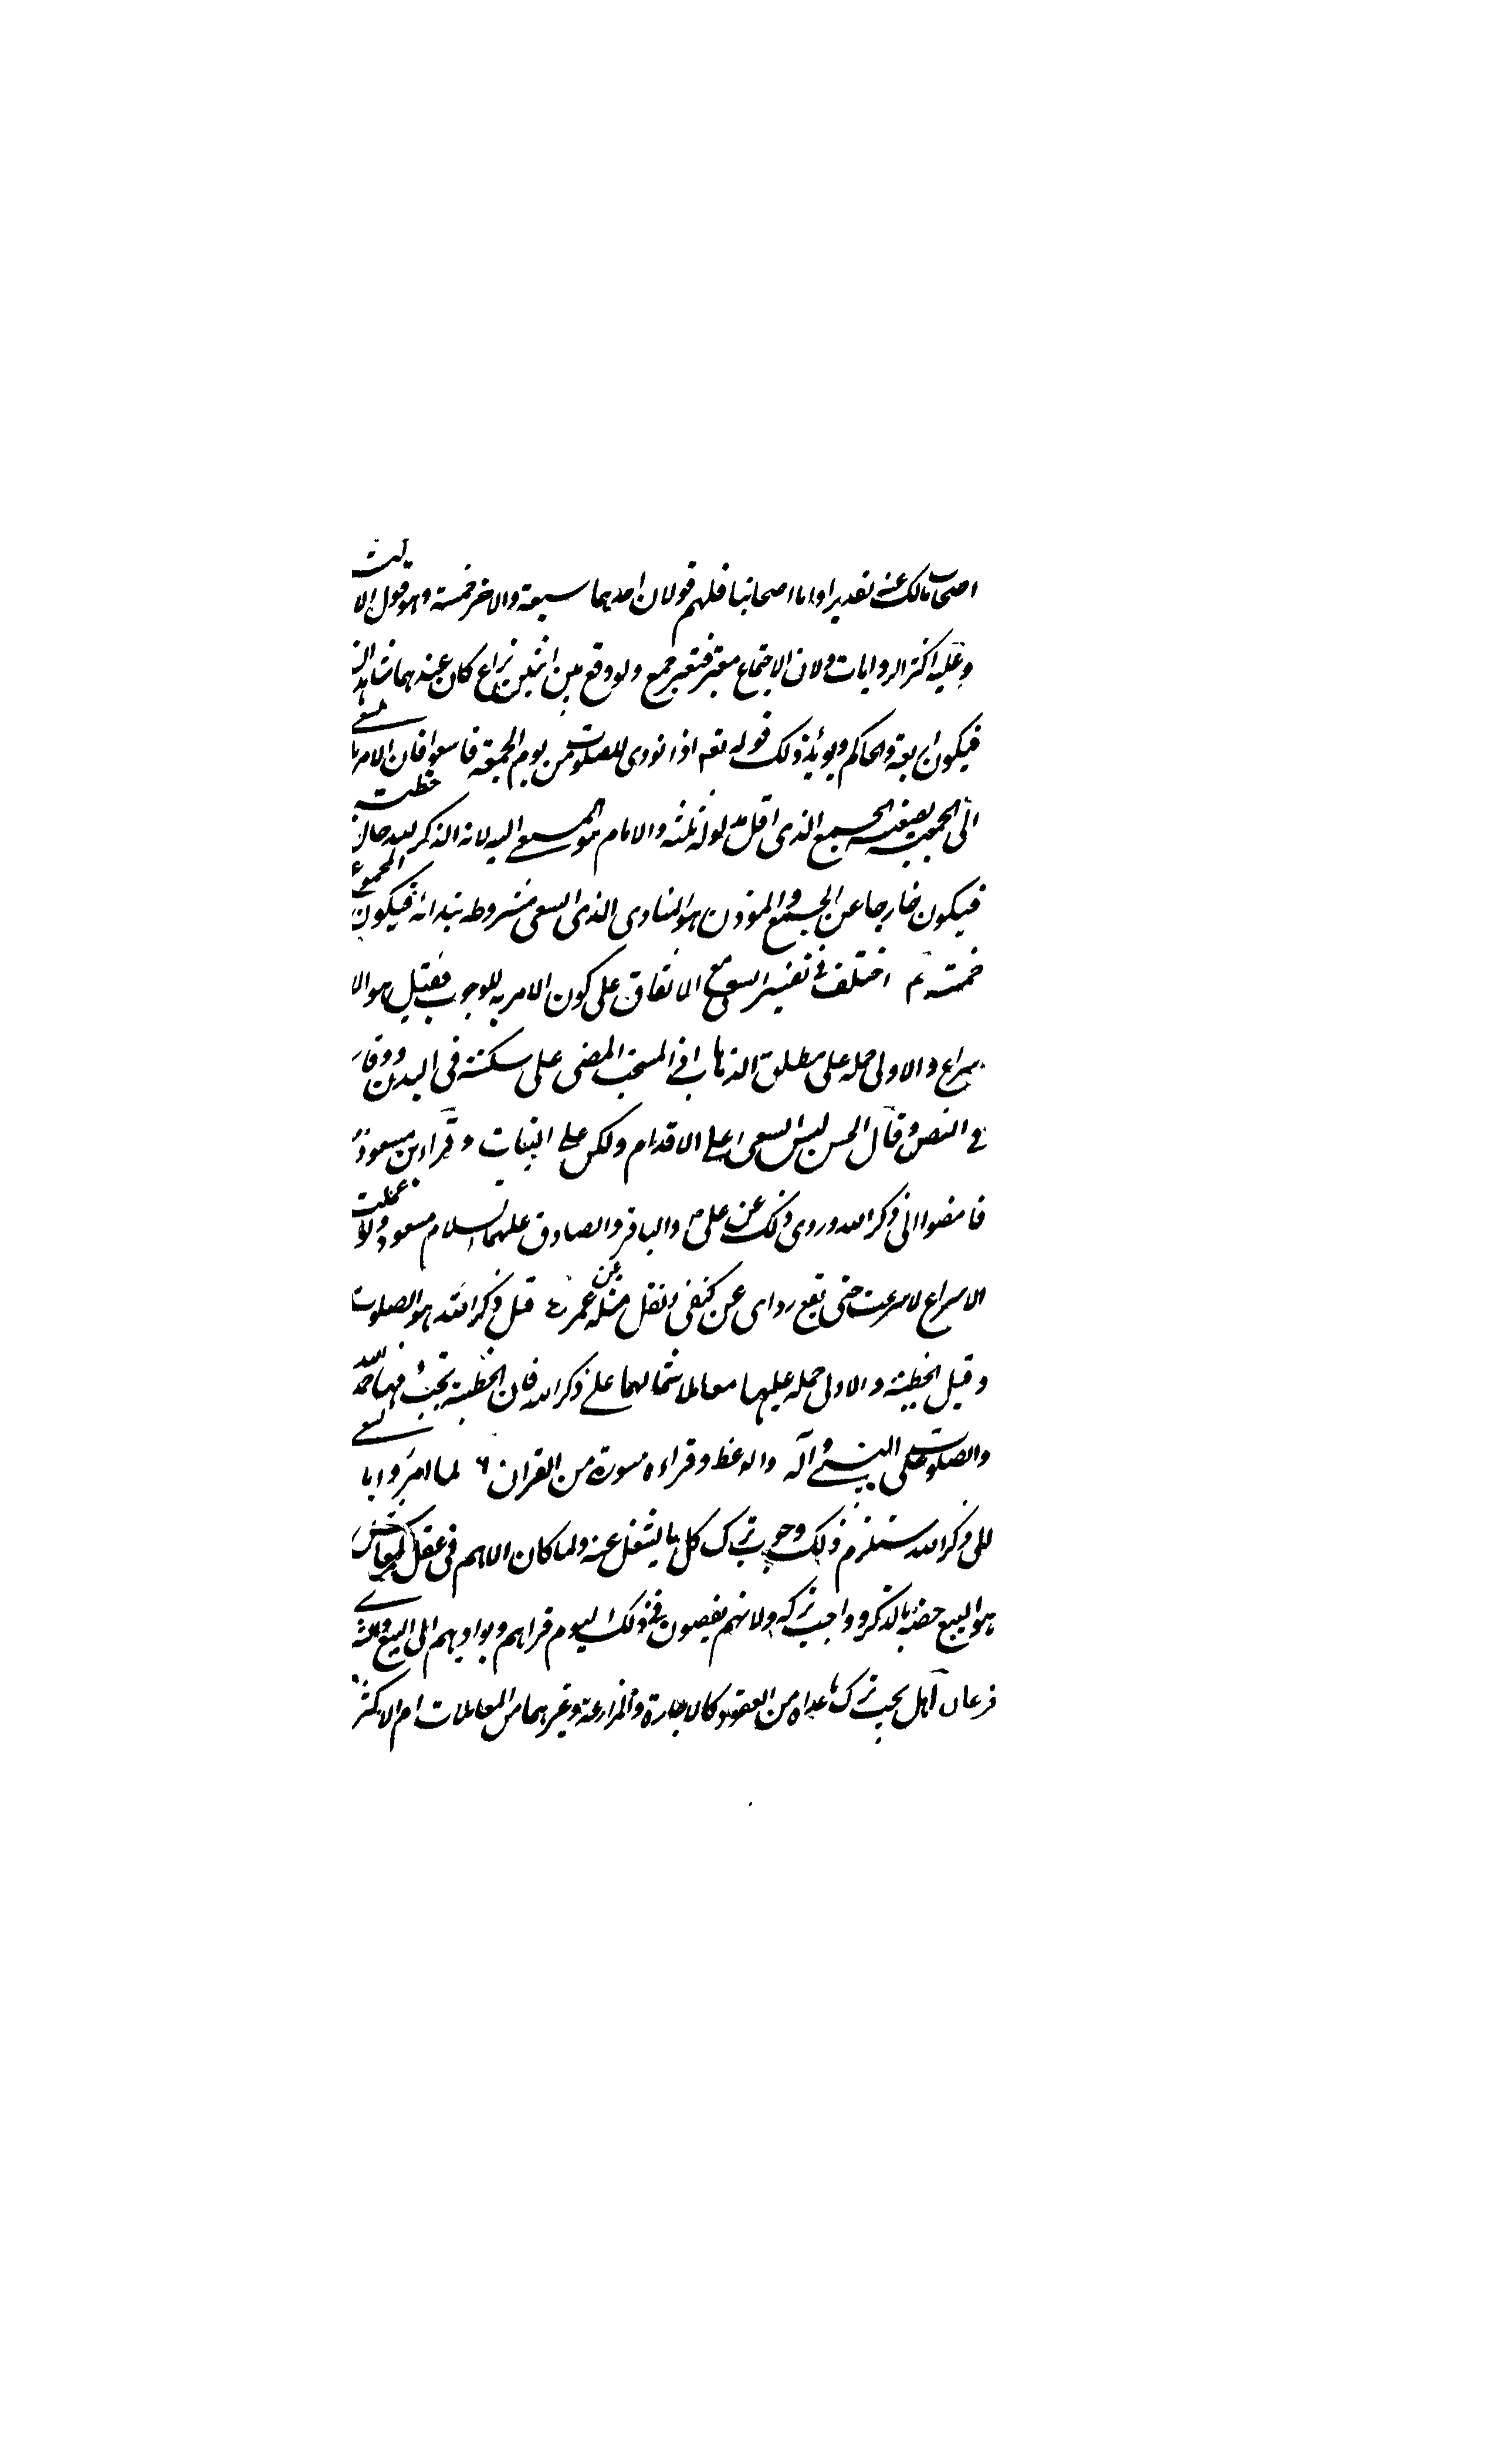 اصحاب مالك عنه تقديرا واما اصحابنا فلهم قولان احدهما سبعة والاخر خمسة وهو قول الا
وعليه اكثر الروايات ولان الاجتماع معتبر فتعبر جمع ولو وقع بين اثنين نزاع كان عندهما شاهدان
فيكون اربعة والحاكم ويؤيد ذلك قوله تعه اذا نودى للصلوة من يوم الجمعة فاسعوا فان الامر بالسعى
الى الجمعة بصيغة الجمع الذى اقل مدلوله ثلثه والامام هو المسعى اليه لانه الذكر لله حال خطبته
فيكون خارجا عن الجمع والمؤذن هو المنادى الذى السعى مشروطه بندائه فيكون المجموع
خمسته ثم اختلف فى تفسير السعى مع الاتفاق على كون الامر به للوجوب فقيل هو الا
سراع والاولى حمله على مطلق الذهاب اذ المستحب المضى على سكنته فى البدن ووقار
فى النص وقال الحسن ليس السعى على الاقدام ولكن على النيات وقراء ابن مسعود
فامضوا الى ذكر الله وروى ذلك عن على والباقر والصادق عليهم السلام مسعود ولو عملت
الاسراع لاسرعت حتى تقع رداى عن كتفى ونقل مثله عن عمر قيل ذكر الله هو الصلوت
وقيل الخطبة والاولى حمله عليهما معا لاشتمالهما على ذكر الله فان الخطبة تجب فيها حمد الله
والصلوت على النبى وآله والوعظ وقراءه سورة من القران لما امروا بالسعى
للى ذكر الله ستلزم ذلك وجوب ترك كل ما يشغل عنه ولما كان الاهم فى عقل المعاش
هو البيع خصه بالذكر وواجب تركه ولانهم يفيصون فى ذلك اليوم قراهم وبواديهم الى البيع والشرى
فرعان آ هل يجب ترك ما عداه من العقود كالاجارة والمزارعة وغيرهما من المعاملات ام لا الاكثر